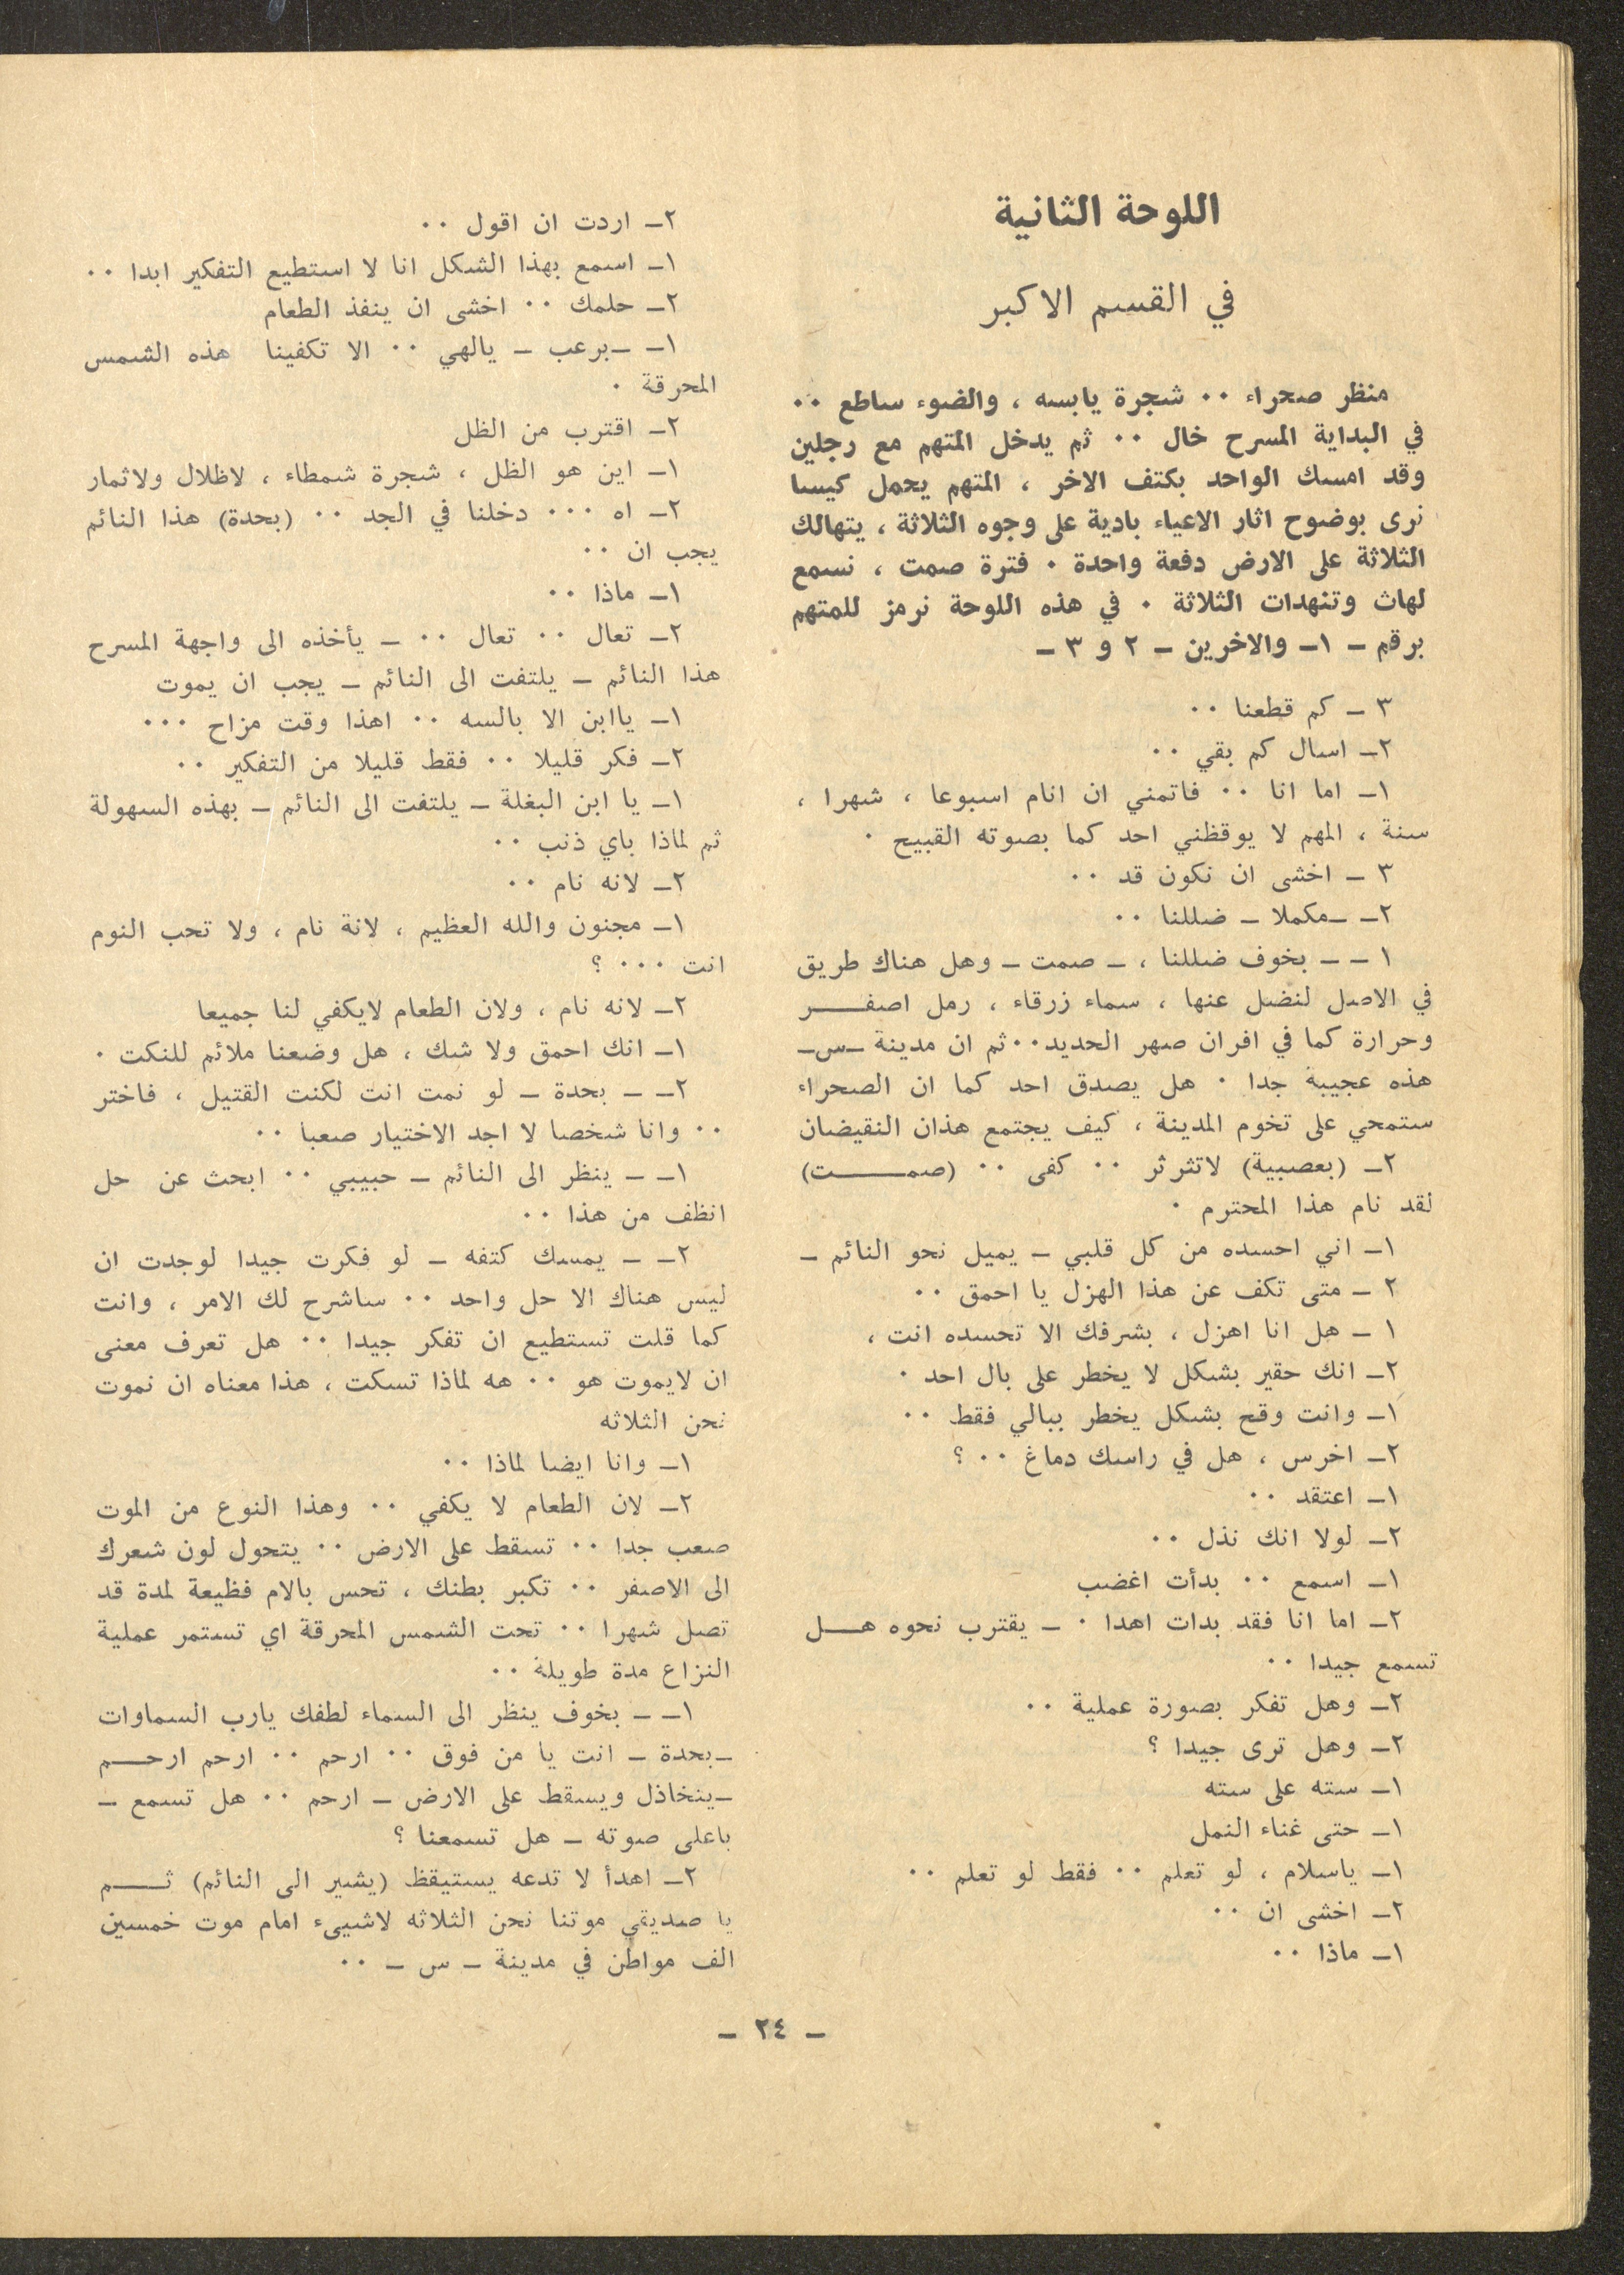 اللوحة الثانية
في القسم الاكبر
منظر صحراء ٠٠ شجرة يابسه ، والضوء ساطع ٠٠
في البداية المسرح خال ٠٠ ثم يدخل المتهم مع رجلين
وقد امسك الواحد بكتف الاخر ، المتهم يحمل كيسا
نرى بوضوح اثار الاعياء بادية على وجوه الثلاثة ، يتهالك
الثلاثة على الارض دفعة واحدة ٠ فترة صمت ، نسمع
لهاث وتنهدات الثلاثة ٠ في هذه اللوحة نرمز للمتهم
برقم ـ ١ـ والاخرين ـ ٢ و ٣ ـ
٣ ـ كم قطعنا ٠٠
٢ـ اسال كم بقي ٠٠
١ـ اما انا ٠٠ فاتمني ان انام اسبوعا ، شهرا ،
سنة ، المهم لا يوقظني احد كما بصوته القبيح ٠
٣ ـ اخشى ان نكون قد ٠٠
٢ـ ـمكملا ـ ضللنا ٠٠
١ ـ ـ بخوف ضللنا ، ـ صمت ـ وهل هناك طريق
في الاصل لنضل عنها ، سماء زرقاء ، رمل اصفـــر
وحرارة كما في افران صهر الحديد٠٠ثم ان مدينة ـسـ
هذه عجيبة جدا ٠ هل يصدق احد كما ان الصحراء
ستمحي على تخوم المدينة ، كيف يجتمع هذان النقيضان
٢ـ (بعصبية) لاتثرثر ٠٠ كفى ٠٠ (صمـــــت)
لقد نام هذا المحترم ٠
١ـ اني احسده من كل قلبي ـ يميل نحو النائم ـ
٢ ـ متى تكف عن هذا الهزل يا احمق ٠٠
١ ـ هل انا اهزل ، بشرفك الا تحسده انت ،
٢ـ انك حقير بشكل لا يخطر على بال احد ٠
١ـ وانت وقح بشكل يخطر ببالي فقط ٠٠
٢ـ اخرس ، هل في راسك دماغ ٠٠ ؟
١ـ اعتقد ٠٠
٢ـ لولا انك نذل ٠٠
١ـ اسمع ٠٠ بدأت اغضب
٢ـ اما انا فقد بدات اهدا ٠ ـ يقترب نحوه هـــل
تسمع جيدا ٠٠
٢ـ وهل تفكر بصورة عملية ٠٠
٢ـ وهل ترى جيدا ؟
١ـ سته على سته
١ـ حتى غناء النمل
١ـ ياسلام ، لو تعلم ٠٠ فقط لو تعلم ٠٠
٢ـ اخشى ان ٠٠
١ـ ماذا ٠٠
٢ـ اردت ان اقول ٠٠
١ـ اسمع بهذا الشكل انا لا استطيع التفكير ابدا ٠٠
٢ـ حلمك ٠٠ اخشى ان ينفذ الطعام
١ـ ـبرعب ـ يالهي ٠٠ الا تكفينا هذه الشمس
المحرقة ٠
٢ـ اقترب من الظل
١ـ اين هو الظل ، شجرة شمطاء ، لاظلال ولاثمار
٢ـ اه ٠٠٠ دخلنا في الجد ٠٠ (بحدة) هذا النائم
يجب ان ٠٠
١ـ ماذا ٠٠
٢ـ تعال ٠٠ تعال ٠٠ ـ يأخذه الى واجهة المسرح
هذا النائم ـ يلتفت الى النائم ـ يجب ان يموت
١ـ ياابن الا بالسه ٠٠ اهذا وقت مزاح ٠٠٠
٢ـ فكر قليلا ٠٠ فقط قليلا من التفكير ٠٠
١ـ يا ابن البغلة ـ يلتفت الى النائم ـ بهذه السهولة
ثم لماذا باي ذنب ٠٠
٢ـ لانه نام ٠٠
١ـ مجنون والله العظيم ، لانة نام ، ولا تحب النوم
انت ٠٠٠ ؟
٢ـ لانه نام ، ولان الطعام لايكفي لنا جميعا
١ـ انك احمق ولا شك ، هل وضعنا ملائم للنكت ٠
٢ـ ـ بحدة ـ لو نمت انت لكنت القتيل ، فاختر
٠٠ وانا شخصا لا اجد الاختيار صعبا ٠٠
١ـ ـ ينظر الى النائم ـ حبيبي ٠٠ ابحث عن حل
انظف من هذا ٠٠
٢ـ ـ يمسك كتفه ـ لو فكرت جيدا لوجدت ان
ليس هناك الا حل واحد ٠٠ ساشرح لك الامر ، وانت
كما قلت تستطيع ان تفكر جيدا ٠٠ هل تعرف معنى
ان لايموت هو ٠٠ هه لماذا تسكت ، هذا معناه ان نموت
نحن الثلاثه
١ـ وانا ايضا لماذا ٠٠
٢ـ لان الطعام لا يكفي ٠٠ وهذا النوع من الموت
صعب جدا ٠٠ تسقط على الارض ٠٠ يتحول لون شعرك
الى الاصفر ٠٠ تكبر بطنك ، تحس بالام فظيعة لمدة قد
تصل شهرا ٠٠ تحت الشمس المحرقة اي تستمر عملية
النزاع مدة طويلة ٠٠
١ـ ـ بخوف ينظر الى السماء لطفك يارب السماوات
ـبحدة ـ انت يا من فوق ٠٠ ارحم ٠٠ ارحم ارحـــم
ـيتخاذل ويسقط على الارض ـ ارحم ٠٠ هل تسمع ـ
باعلى صوته ـ هل تسمعنا ؟
٢ـ اهدأ لا تدعه يستيقظ (يشير الى النائم) ثـــم
يا صديقي موتنا نحن الثلاثه لاشييء امام موت خمسين
الف مواطن في مدينة ـ س ـ ٠٠
ـ ٢٤ ـ